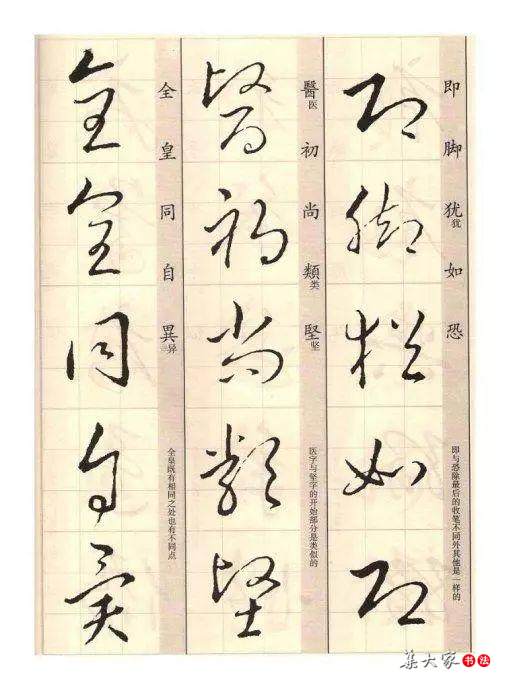 即脚犹犹如恐
即与恐除最后的收笔不同外其他是一样的
即脚犹如恐
醫医初尚類类堅坚
医字与坚字的开始部分是类似的
醫初尚類堅
全皇同自異异
全皇既有相同之处也有不同点
全皇同自異
集大家书法